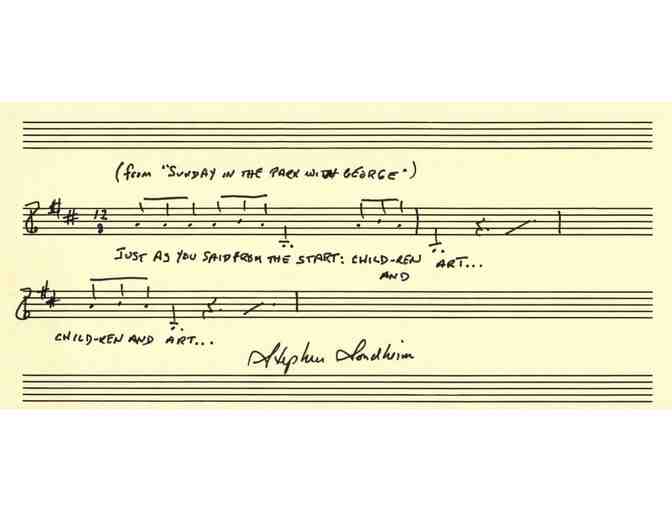 (from "SUNDAY IN THE PARK WITH GEORGE")
12
8
JUST AS YOU SAID FROM THE START: CHILD-REN ART...
AND
CHILD-REN AND ART...
Stephen Sondheim